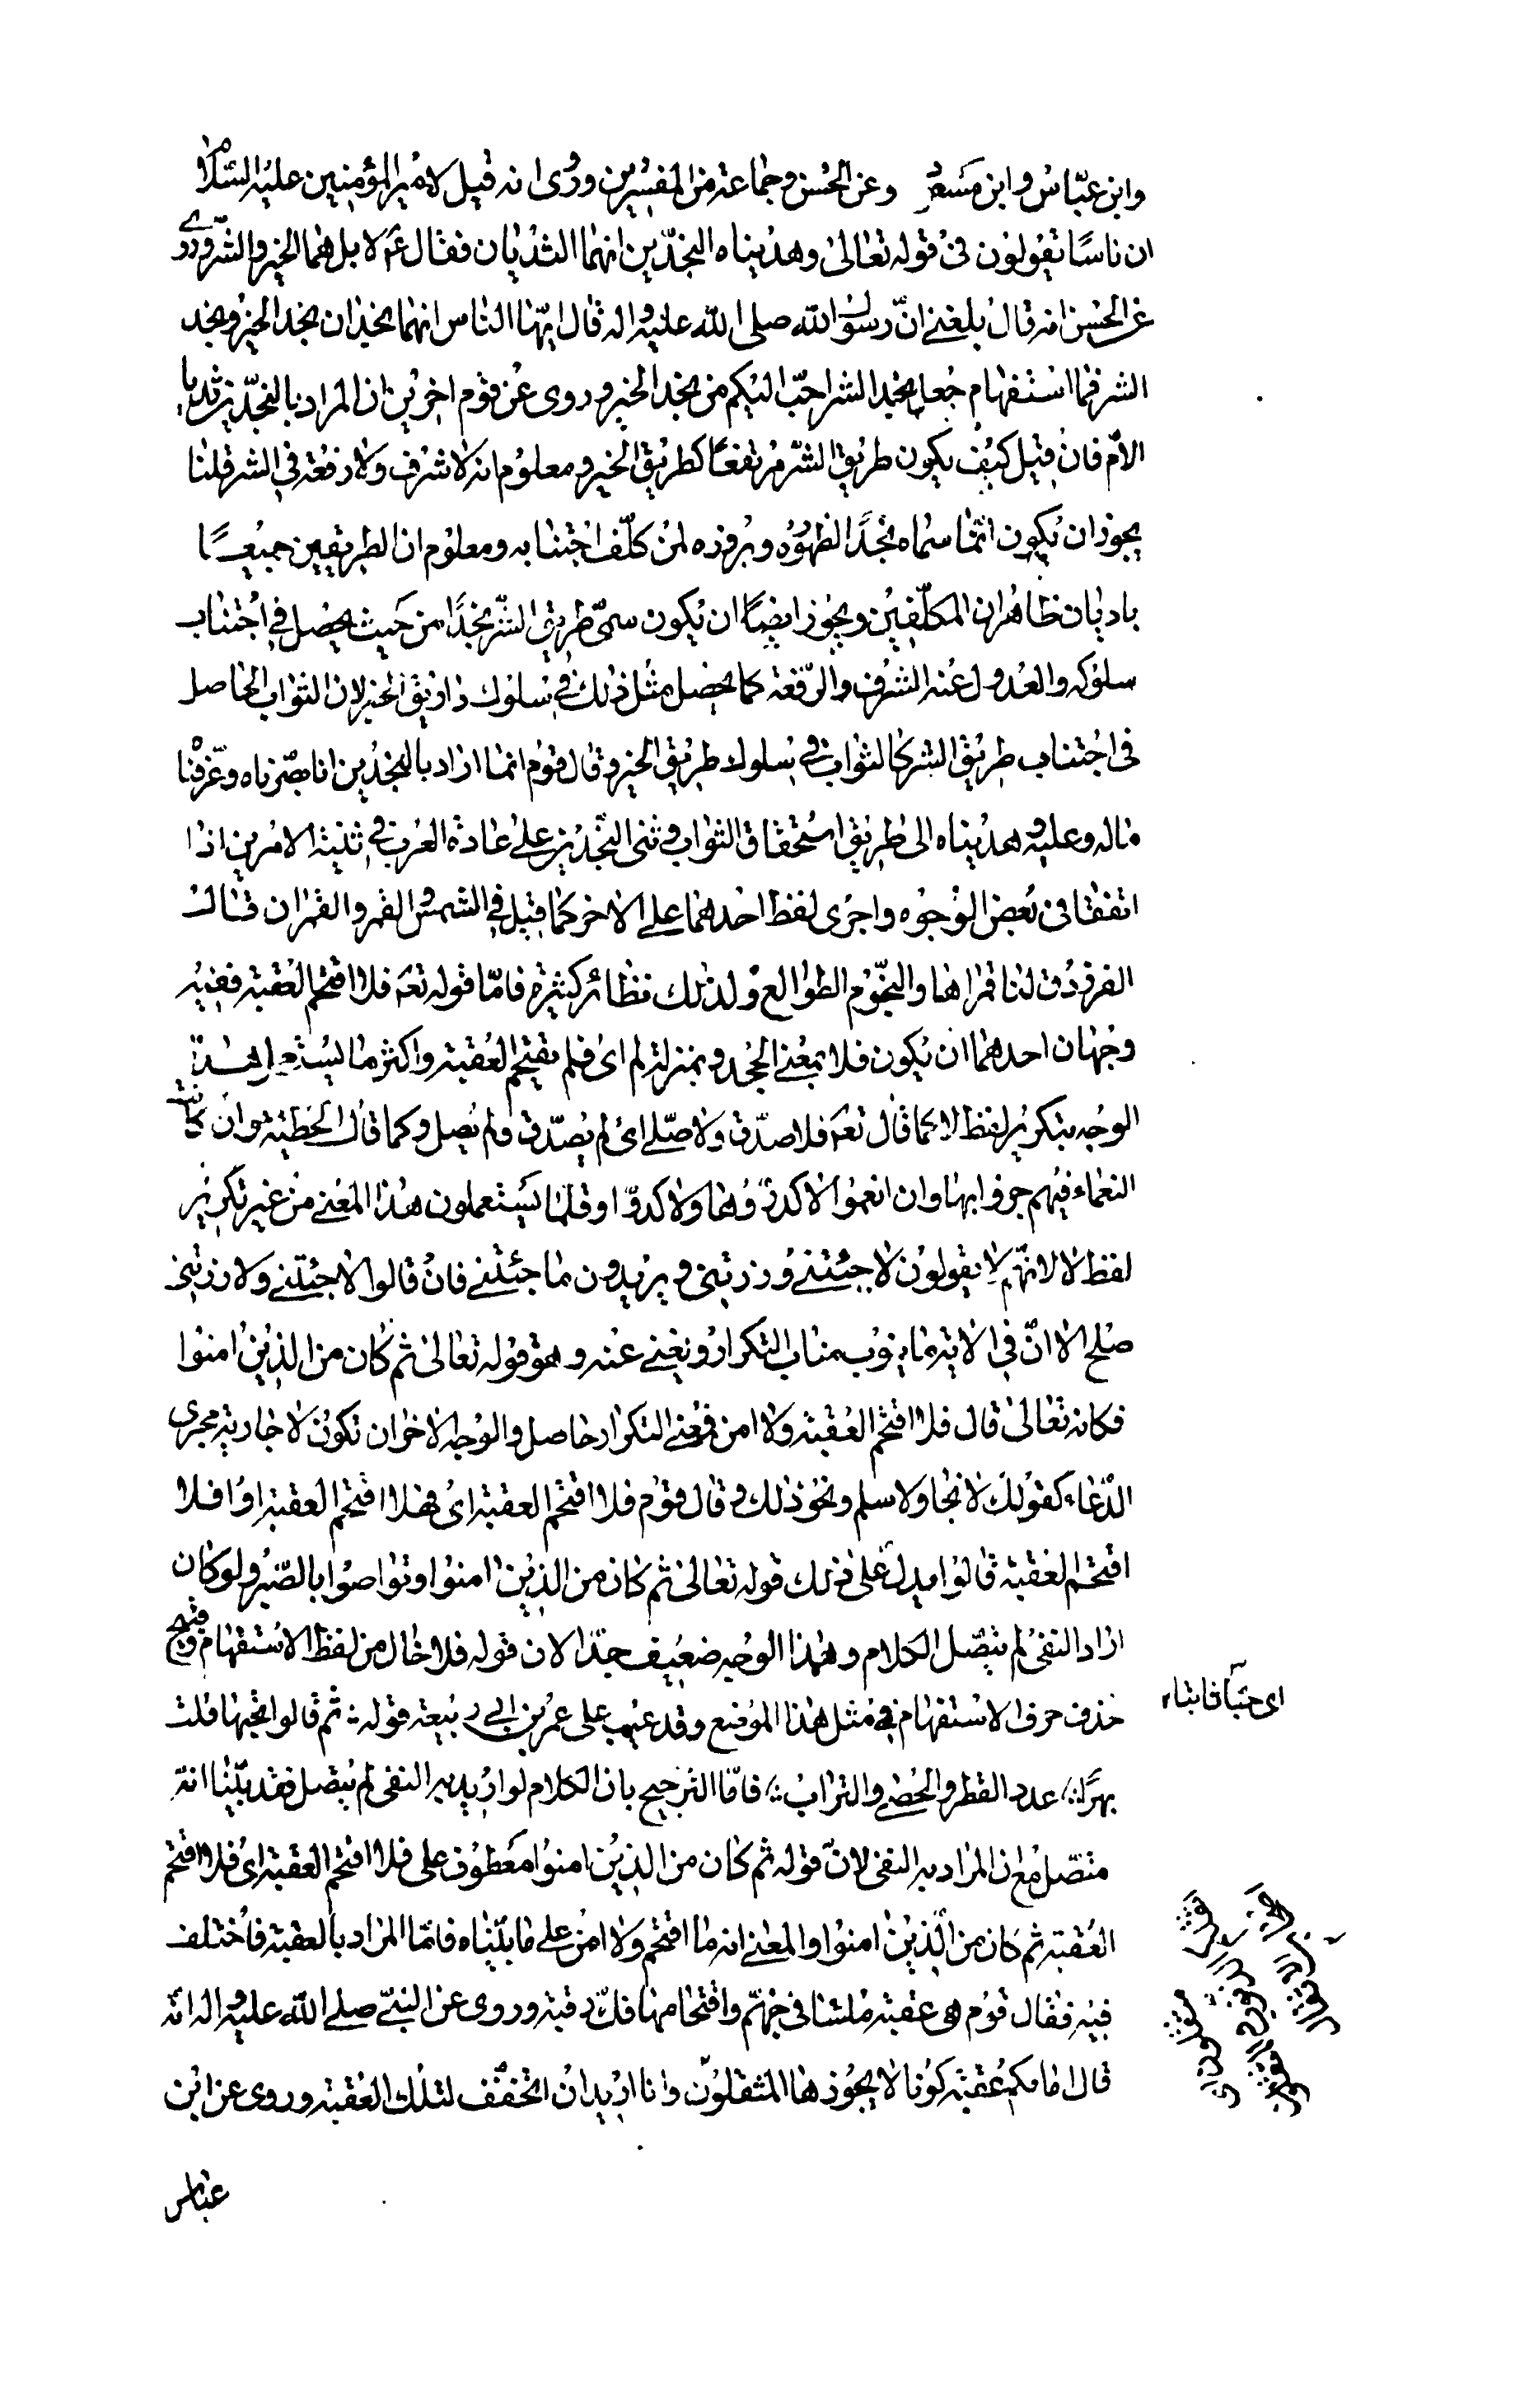 وابن عبّاس وابن مسعود وعن الحسن وجماعة من المفسرين وروى انه قيل لامير المؤمنين عليه السلام
ان ناسًا يقولون فى قوله تعالى وهديناه النجدين انهما الثديان فقال ع لا بل هما الخير والشر وروى
عن الحسن انه قال بلغنى انّ رسول الله صلى الله عليه واله قال ايّها الناس انهما نجدان نجد الخير ونجد
الشر فما استفهام جعل نجد الشر احبّ اليكم من نجد الخير وروى عن قوم اخرين ان المراد بالنجدين ثديا
الامّ فان قيل كيف يكون طريق الشّر مرتفعًا كطريق الخير ومعلوم انه لا شرف ولا رفعة فى الشر قلنا
يجوز ان يكون انّما سماه نجدًا لظهوره وبروزه لمن كلّف اجتنابه ومعلوم ان الطريقين جميعًا
باديان ظاهران المكلّفين ويجوز ايضًا ان يكون سمّى طريق الشّر نجدًا من حيث يحصل فى اجتناب
سلوكه والعدول عنه الشرف والرّفعة كما يحصل مثل ذلك فى سلوك طريق الخير لان الثواب الحاصل
فى اجتناب طريق الشر كالثواب فى سلوك طريق الخير وقال قوم انما اراد بالنجدين انا بصّرناه وعرّفنا
ما له وعليه وهديناه الى طريق استحقاق الثواب وثنى النّجدين على عادة العرب فى تثنية الامرين اذا
اتفقا فى بعض الوجوه واجرى لفظ احدهما على الاخر كما قيل فى الشمس والقمر والقمران قال
الفرزدق لنا قمراها والنجّوم الطوالع ولذلك نظائر كثيرة فامّا قوله تعه فلا اقتحم العقبة ففيه
وجهان احدهما ان يكون فلا بمعنى الجحد وبمنزلة لم اى فلم يقتحم العقبة واكثر ما يستعمل هذا
الوجه بتكرير لفظ لا كما قال تعه فلا صدّق ولا صلّى اى لم يصدّق ولم يصل وكما قال الحطيئة وان كانت
النعماء فيهم جزوا بها وان انعموا لا كدّروها ولا كدّوا وقلّما يستعملون هذا المعنى من غير تكرير
لفظ لا لانّهم لا يقولون لا جئتنى وزرتنى ويريدون ما جئتنى فان قالوا لا جئتنى ولا زرتنى
صلح الا انّ فى الاية ما ينوب مناب التكرار ويغنى عنه وهو قوله تعالى ثم كان من الذين امنوا
فكانه تعالى قال فلا اقتحم العقبة ولا امن فمعنى التكرار حاصل والوجه الاخر ان تكون لا جارية مجرى
الدّعاء كقولك لا نجا ولا سلم ونحو ذلك وقال قوم فلا اقتحم العقبة اى فهلا اقتحم العقبة او افلا
اقتحم العقبة قالوا ويدل على ذلك قوله تعالى ثم كان من الذين امنوا وتواصوا بالصّبر ولو كان
اراد النفى لم يتصّل الكلام وهذا الوجه ضعيف جدّا لان قوله فلا خال من لفظ الاستفهام وقبيح
حذف حرف الاستفهام فى مثل هذا الموضع وقد عيب على عمر بن ابى ربيعة قوله ثم قالوا تحبها قلت
بهرًا عدد القطر والحصى والتراب فامّا الترجيح بان الكلام لو اريد به النفى لم يتصل فقد بيّنا انه
متصّل مع ان المراد به النفى لانّ قوله ثم كان من الذين امنوا معطوف على فلا اقتحم العقبة اى فلا اقتحم
العقبة ثم كان من الّذين امنوا والمعنى انه ما اقتحم ولا امن على ما بيّناه فامّا المراد بالعقبة فاختلف
فيه فقال قوم هى عقبة ملسا فى جهنّم واقتحامها فكّ رقبة وروى عن النبىّ صلى الله عليه واله انه
قال امامكم عقبة كؤنا لا يجوزها المثقلون وانا اريد ان اتخفّف لتلك العقبة وروى عن ابن
عباس